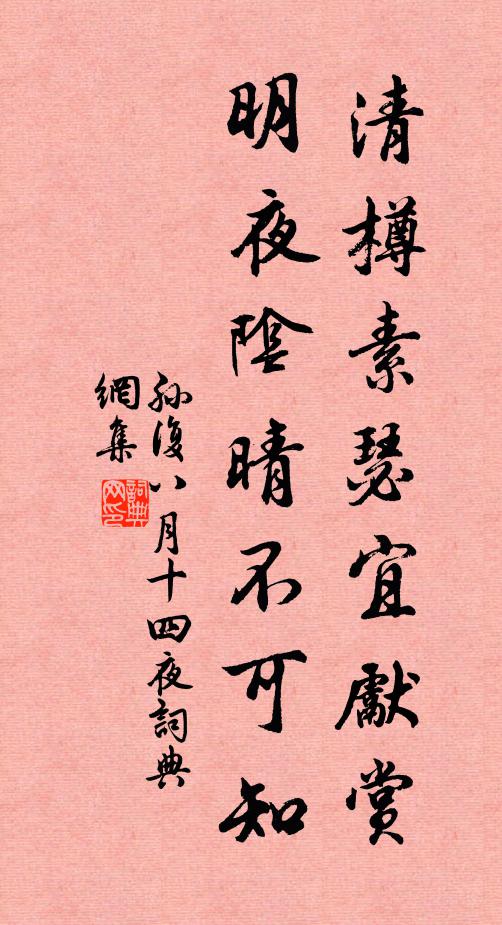 清樽素瑟宜獻賞
明夜陰晴不可知
孫復八月十四夜詞典
網集
詞典
网印